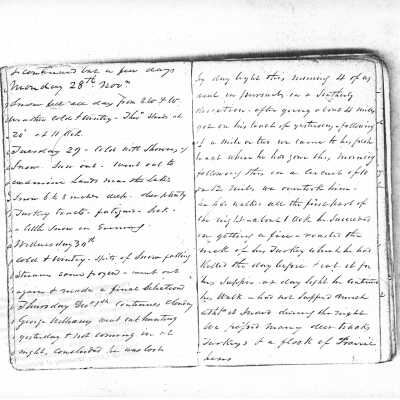 & continued but a few days
Monday 28th Novr
Snow fell all day from SW & W.
weather cold & wintry. Thr. stands at
20° at 11 Ock
Tuesday 29. Cold with Showers of
Snow. Sun out. went out to
examine lands near the Lake
Snow 6 & 8 inches deep. deer plenty
Turkey tracts.
a little Snow in Evening
Wednesday 30th
Cold & wintry. Spits of Snow falling
Streams some froze. went out
again & made a final selection
Thursday Dec 1st Continues Cloudy
George Williams went out hunting
yesterday & not coming in at
night, concluded he was lost
by day light this morning 4 of us
went in pursuit in a Southerly
direction. after going about 4 miles
got on his track of yesterday, following
it a mile or two we came to his fresh
track where he has gone this morning
following this on a circuit of 10
or 12 miles we overtook him.
he had walked all the first part of
the night about 1 Ock he succeeded
in getting a fire. roasted the
neck of his Turkey which he had
killed the day before & eat it for
his Supper. at day light he continued
his Walk. had not suffered much
altho it snowed during the night
We passed many deer tracks
Turkeys & a flock of Prairie
hens